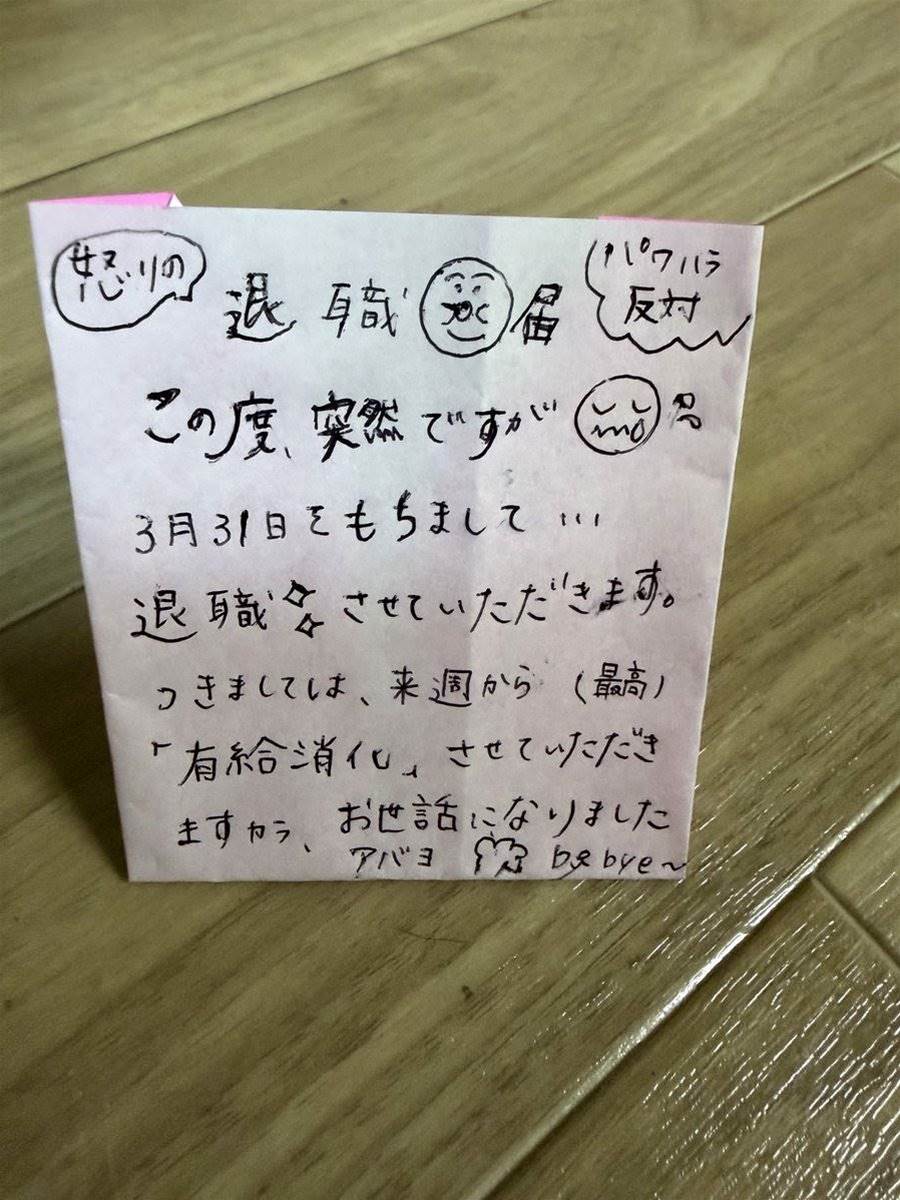 怒りの
退職届
パワハラ
反対
この度、突然ですが
3月31日をもちまして…
退職させていただきます。
つきましては、来週から(最高)
「有給消化」させていただき
ますカラ、お世話になりました
アバヨ bye bye~